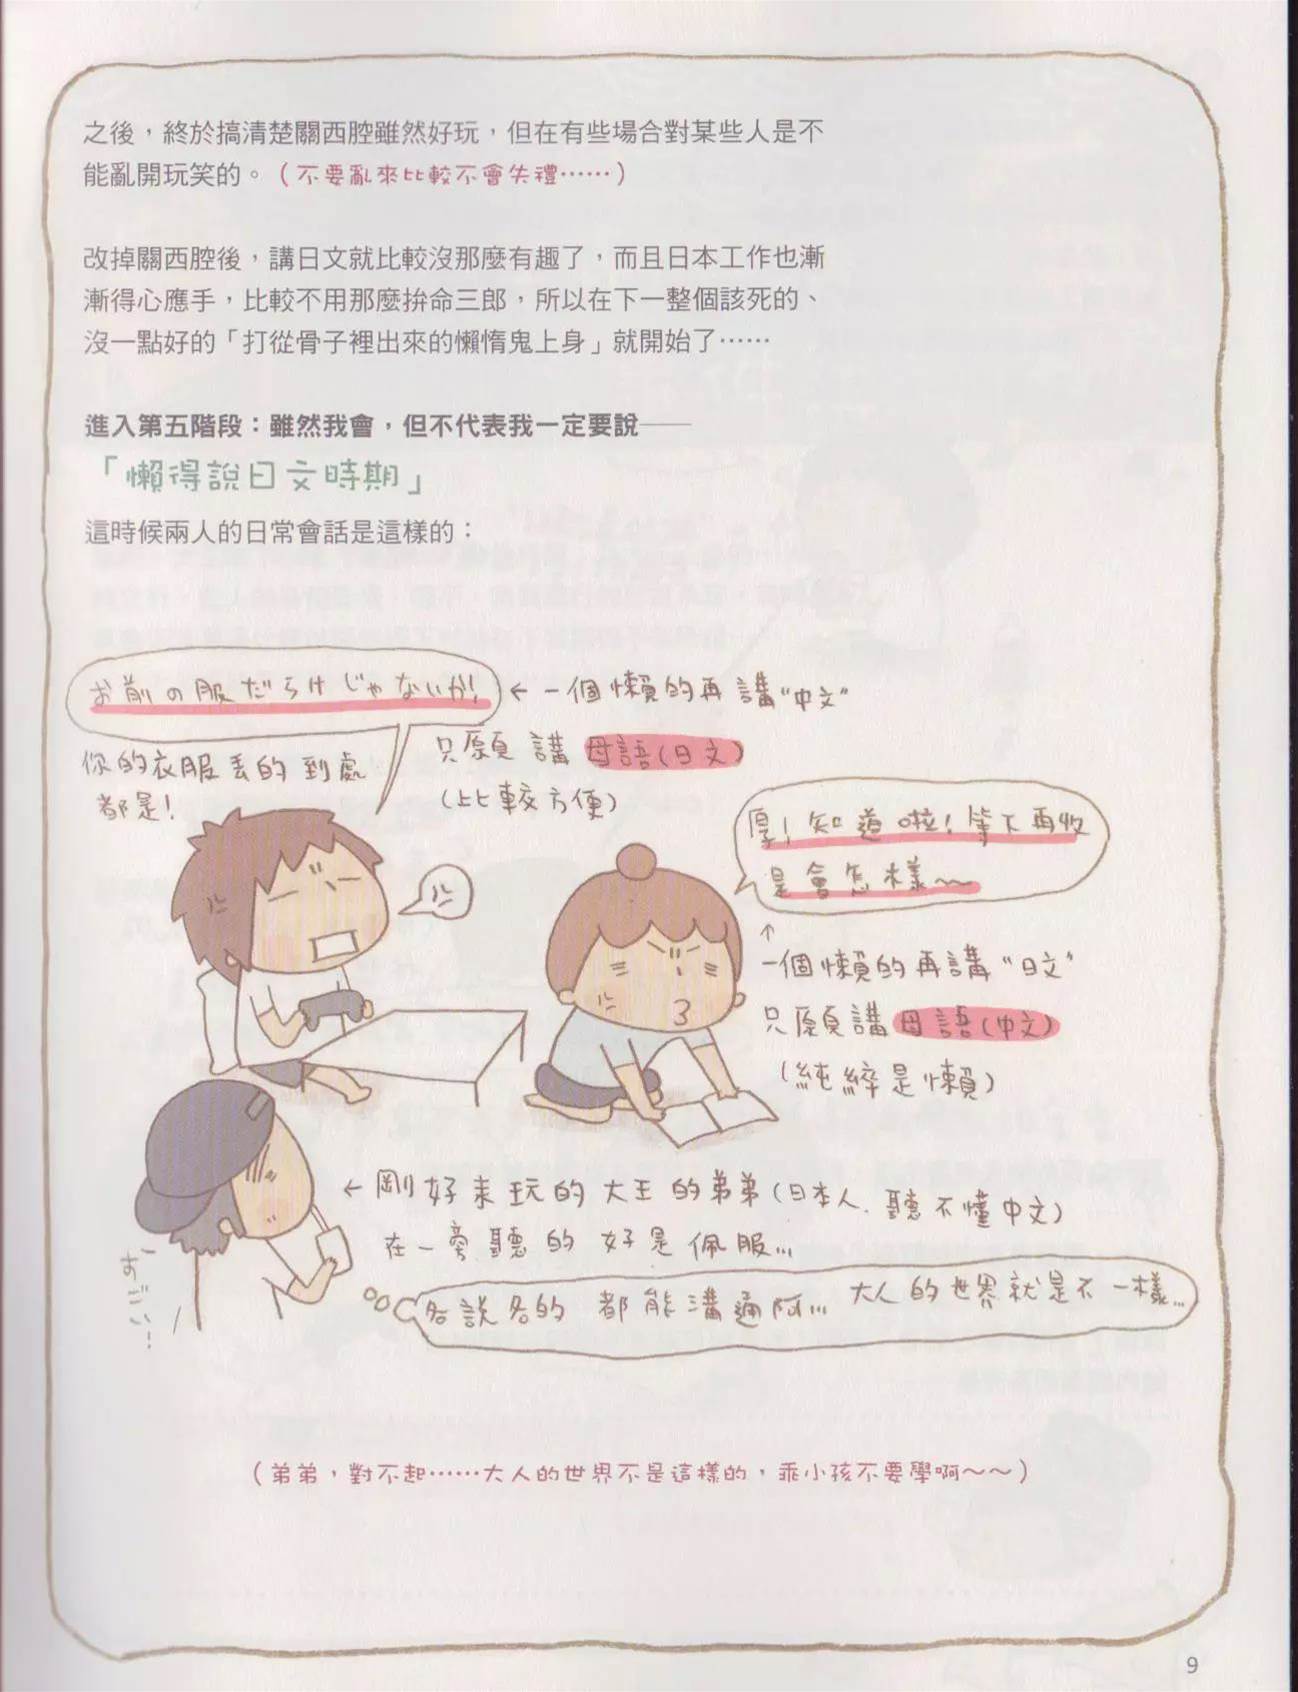 之後，終於搞清楚關西腔雖然好玩，但在有些場合對某些人是不
能亂開玩笑的。（不要亂來比較不會失禮……）
改掉關西腔後，講日文就比較沒那麼有趣了，而且日本工作也漸
漸得心應手，比較不用那麼拚命三郎，所以在下一整個該死的、
沒一點好的「打從骨子裡出來的懶惰鬼上身」就開始了……
進入第五階段：雖然我會，但不代表我一定要說——
「懶得說日文時期」
這時候兩人的日常會話是這樣的：
お前の服だらけじゃないか！
←一個懶的再講“中文”
只願講母語(日文)
(比較方便)
你的衣服丟的到處
都是！
厚！知道啦！等下再收
是會怎樣～
↑
一個懶的再講“日文”
只願講母語(中文)
(純綷是懶)
←剛好來玩的大王的弟弟(日本人、聽不懂中文)
在一旁聽的好是佩服…
すごい…
各說各的都能溝通阿… 大人的世界就是不一樣…
（弟弟，對不起……大人的世界不是這樣的，乖小孩不要學啊～～）
9